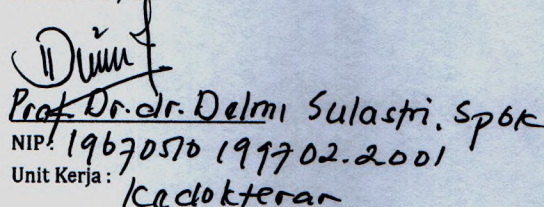 Prof. Dr. dr. Delmi Sulastri, SpGK
NIP: 19670510 199702.2001
Unit Kerja : Kedokteran